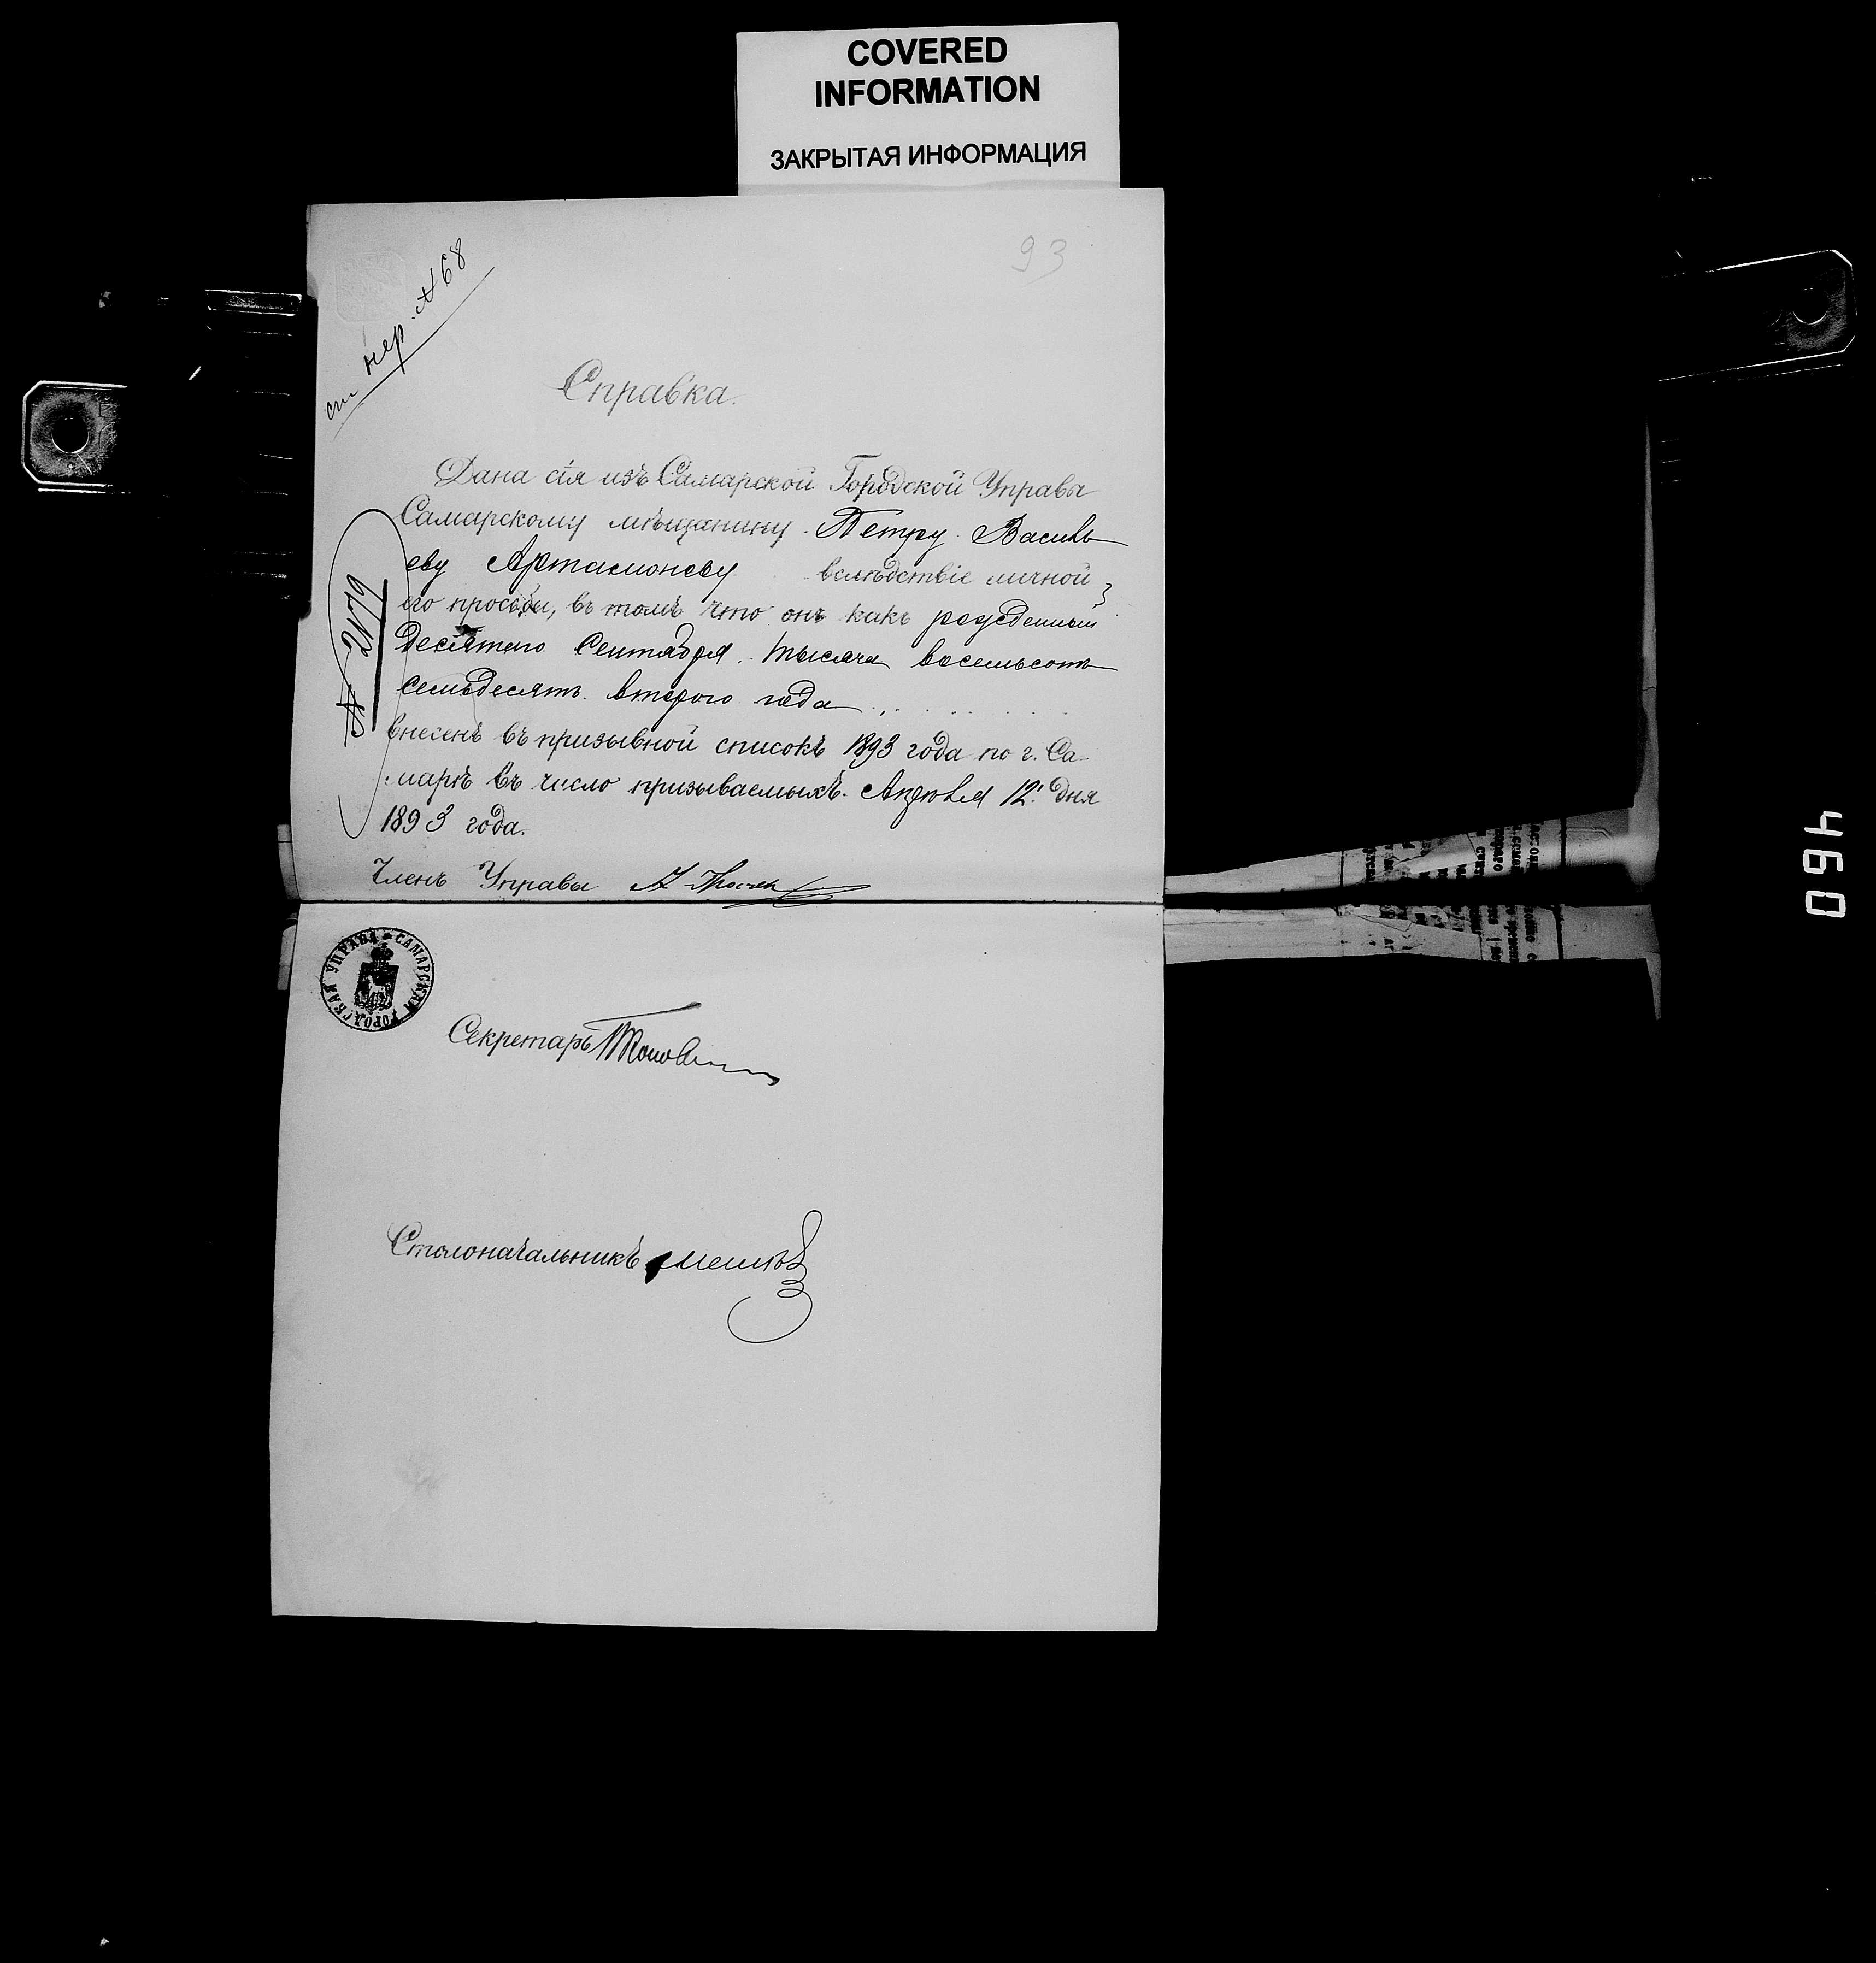 COVERED
INFORMATION
ЗАКРЫТАЯ ИНФОРМАЦИЯ
93
№ 68
Справка.
Дана сія изъ Самарской Городской Управы
Самарскому мѣщанину Петру Василь
еву Артамонову вслѣдствіе личной
его просьбы, въ томъ что онъ какъ рожденный
десятаго Сентября тысяча восемьсотъ
семьдесятъ второго года
внесенъ въ призывной списокъ 1893 года по г. Са-
марѣ въ число призываемыхъ. Апрѣля 12. дня
1893 года.
Членъ Управы
САМАРСКАЯ ГОРОДСКАЯ УПРАВА
Секретарь
Столоначальникъ
460